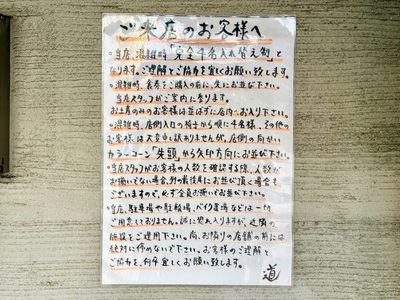 ご来店のお客様へ
・当店、混雑時「完全4名入れ替え制」と
なります。ご理解とご協力を宜しくお願い致します。
・混雑時、食券をご購入の前に、先にお並び下さい。
当店スタッフがご案内に参ります。
お土産のみのお客様は並ばずに店内へお入り下さい。
・混雑時、店側入口の椅子から順に4名様、その他の
お客様は大変申し訳ありませんが、店側の向かい
カラーコーン「先頭」から矢印方向にお並び下さい。
・当店スタッフがお客様の人数を確認する際、人数が
お揃いでない場合、列の最後尾にお並び頂く場合も
ございますので、必ず全員お揃いでお並び下さい。
・当店、駐車場や駐輪場、バイク置場などは一切
ご用意しておりません。誠に恐れ入りますが、近隣の
施設をご利用下さい。尚、お隣りの店舗の前には
絶対に停めないで下さい。お客様のご理解と
ご協力を、何卒宜しくお願い致します。
道